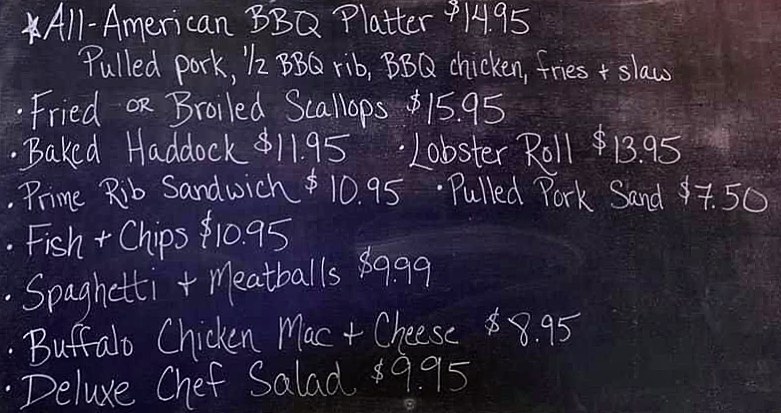 ★All-American BBQ Platter $14.95
Pulled pork, 1/2 BBQ rib, BBQ chicken, fries + slaw
· Fried OR Broiled Scallops $15.95
· Baked Haddock $11.95 · Lobster Roll $13.95
· Prime Rib Sandwich $10.95 · Pulled Pork Sand $7.50
· Fish + Chips $10.95
· Spaghetti + Meatballs $9.99
· Buffalo Chicken Mac + Cheese $8.95
· Deluxe Chef Salad $9.95